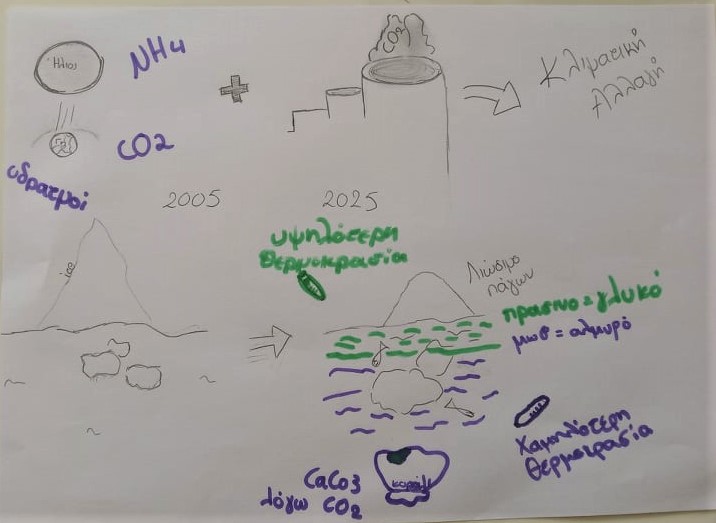 Ήλιος
NH4
CO2
υδρατμοί
Γη
CO2
Κλιματική
Αλλαγή
2005
2025
ice
υψηλότερη
θερμοκρασία
Λιώσιμο
πάγων
πρασινο=γλυκό
μωβ = αλμυρό
χαμηλότερη
θερμοκρασία
CaCo3
λόγω CO2
κοράλι